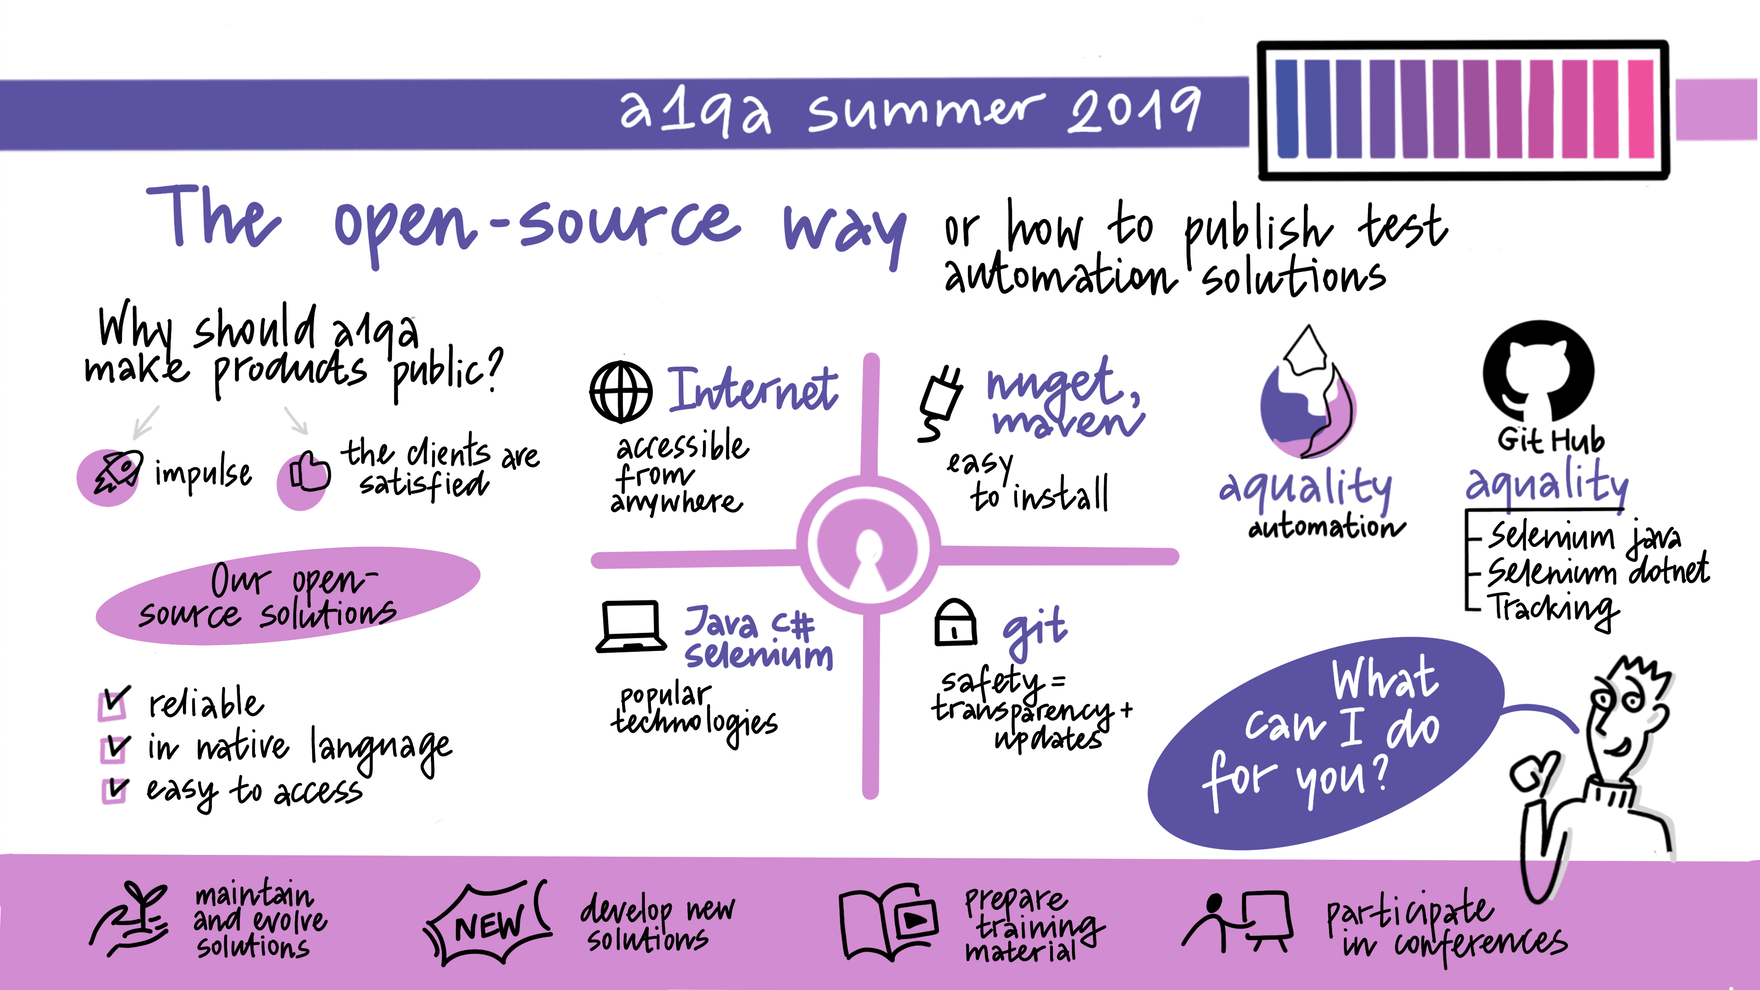 a1qa summer 2019
The open-source way
or how to publish test
automation solutions
Why should a1qa
make products public?
impulse
the clients are
satisfied
Our open-
source solutions
reliable
in native language
easy to access
Internet
accessible
from
anywhere
nuget,
maven
easy
to install
Java c#
selenium
popular
technologies
git
safety =
transparency +
updates
aquality
automation
GitHub
aquality
Selenium java
Selenium dotnet
Tracking
What
can I do
for you?
maintain
and evolve
solutions
NEW
develop new
solutions
prepare
training
material
participate
in conferences